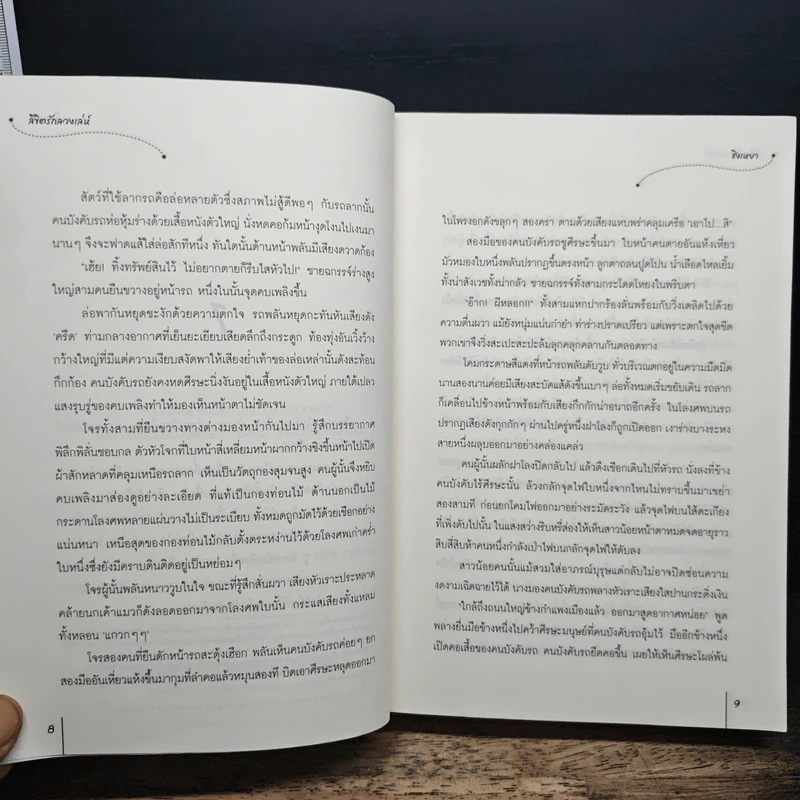 ลิขิตรักลวงเล่ห์
สัตว์ที่ใช้ลากรถคือล่อหลายตัวซึ่งสภาพไม่สู้ดีพอๆ กับรถลากนั้น
คนบังคับรถห่อหุ้มร่างด้วยเสื้อหนังตัวใหญ่ นั่งหดคอก้มหน้างุดโงนไปเงนมา
นานๆ จึงจะฟาดแส้ใส่ล่อสักทีหนึ่ง ทันใดนั้นด้านหน้าพลันมีเสียงตวาดก้อง
"เฮ้ย! ทิ้งทรัพย์สินไว้ ไม่อยากตายก็รีบไสหัวไป!" ชายฉกรรจ์ร่างสูง
ใหญ่สามคนยืนขวางอยู่หน้ารถ หนึ่งในนั้นจุดคบเพลิงขึ้น
ล่อพากันหยุดชะงักด้วยความตกใจ รถพลันหยุดกะทันหันเสียงดัง
'ครืด' ท่ามกลางอากาศที่เย็นยะเยียบเสียดลึกถึงกระดูก ท้องทุ่งอันเวิ้งว้าง
กว้างใหญ่ที่มีแต่ความเงียบสงัดพาให้เสียงย่ำเท้าของล่อเหล่านั้นดังสะท้อน
กึกก้อง คนบังคับรถยังคงหดศีรษะนิ่งงันอยู่ในเสื้อหนังตัวใหญ่ ภายใต้เปลว
แสงรุบรู่ของคบเพลิงทำให้มองเห็นหน้าตาไม่ชัดเจน
โจรทั้งสามที่ยืนขวางทางต่างมองหน้ากันไปมา รู้สึกบรรยากาศ
พิลึกพิลั่นชอบกล ตัวหัวโจกที่ใบหน้าสี่เหลี่ยมหน้าผากกว้างชิงขึ้นหน้าไปเปิด
ผ้าสักหลาดที่คลุมเหนือรถลาก เห็นเป็นวัตถุกองสุมจนสูง คนผู้นั้นจึงหยิบ
คบเพลิงมาส่องดูอย่างละเอียด ที่แท้เป็นกองท่อนไม้ ด้านนอกเป็นไม้
กระดานโลงศพหลายแผ่นวางไม่เป็นระเบียบ ทั้งหมดถูกมัดไว้ด้วยเชือกอย่าง
แน่นหนา เหนือสุดของกองท่อนไม้กลับตั้งตระหง่านไว้ด้วยโลงศพเก่าคร่ำ
ใบหนึ่งซึ่งยังมีคราบดินติดอยู่เป็นหย่อมๆ
โจรผู้นั้นพลันหนาววูบในใจ ขณะที่รู้สึกสั่นผวา เสียงหัวเราะประหลาด
คล้ายนกเค้าแมวก็ดังลอดออกมาจากโลงศพใบนั้น กระแสเสียงทั้งแหลม
ทั้งหลอน 'แกวกๆๆ'
โจรสองคนที่ยืนดักหน้ารถสะดุ้งเฮือก พลันเห็นคนบังคับรถค่อยๆ ยก
สองมืออันเหี่ยวแห้งขึ้นมากุมที่ลำคอแล้วหมุนสองที บิดเอาศีรษะหลุดออกมา
8
ชิงเหยา
ในโพรงอกดังขลุกๆ สองครา ตามด้วยเสียงแหบพร่าคลุมเครือ "เอาไป...สิ"
สองมือของคนบังคับรถชูศีรษะขึ้นมา ใบหน้าคนตายอันแห้งเหี่ยว
มัวหมองใบหนึ่งพลันปรากฏขึ้นตรงหน้า ลูกตาถลนปูดโปน น้ำเลือดไหลเยิ้ม
ทั้งน่าสังเวชทั้งน่ากลัว ชายฉกรรจ์ทั้งสามกระโดดโหยงในพริบตา
"อ๊าก! ผีหลอก!!" ทั้งสามแหกปากร้องลั่นพร้อมกับวิ่งเตลิดไปด้วย
ความตื่นผวา แม้ยังหนุ่มแน่นกำยำ ท่าร่างปราดเปรียว แต่เพราะตกใจสุดขีด
พวกเขาจึงวิ่งสะเปะสะปะล้มลุกคลุกคลานกันตลอดทาง
โคมกระดาษสีแดงที่หน้ารถพลันดับวูบ ทั่วบริเวณตกอยู่ในความมืดมิด
นานสองนานค่อยมีเสียงสะบัดแส้ดังขึ้นเบาๆ ล่อทั้งหมดเริ่มขยับเดิน รถลาก
ก็เคลื่อนไปข้างหน้าพร้อมกับเสียงกึกกักน่าอนาถอีกครั้ง ในโลงศพบนรถ
ปรากฏเสียงดังกุกกักๆ ผ่านไปครู่หนึ่งฝาโลงก็ถูกเปิดออก เงาร่างบางระหง
สายหนึ่งผลุบออกมาอย่างคล่องแคล่ว
คนผู้นั้นผลักฝาโลงปิดกลับไป แล้วดึงเชือกเดินไปที่หัวรถ นั่งลงที่ข้างคน
บังคับไร้ศีรษะนั้น ล้วงกลักจุดไฟใบหนึ่งจากไหนไม่ทราบขึ้นมาเขย่า
สองสามที ก่อนยกโคมไฟออกมาอย่างระมัดระวัง แล้วจุดไฟบนไส้ตะเกียง
ที่เพิ่งดับไปนั้น ในแสงสว่างริบหรี่ส่องให้เห็นสาวน้อยหน้าตาหมดจดอายุราว
สิบสี่สิบห้าคนหนึ่งกำลังเป่าไฟบนกลักจุดไฟให้ดับลง
สาวน้อยคนนั้นแม้สวมใส่อาภรณ์บุรุษแต่กลับไม่อาจปิดซ่อนความ
งดงามเฉิดฉายไว้ได้ นางมองคนบังคับรถพลางหัวเราะเสียงใสปานกระดิ่งเงิน
"ใกล้ถึงถนนใหญ่ข้างกำแพงเมืองแล้ว ออกมาสูดอากาศหน่อย" พูด
พลางยื่นมือข้างหนึ่งไปคว้าศีรษะมนุษย์ที่คนบังคับรถอุ้มไว้ มืออีกข้างหนึ่ง
เปิดคอเสื้อของคนบังคับรถ คนบังคับรถยืดคอขึ้น เผยให้เห็นศีรษะโผล่พ้น
9